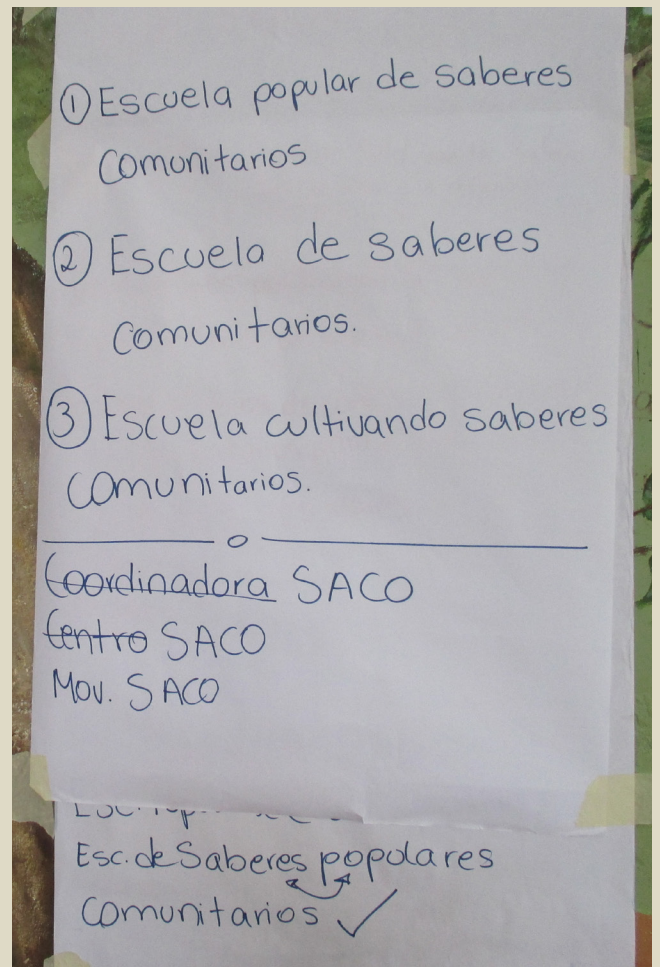 ① Escuela popular de saberes
Comunitarios
② Escuela de saberes
Comunitarios.
③ Escuela cultivando saberes
Comunitarios.
o
Coordinadora SACO
Centro SACO
Mov. SACO
Esc. de Saberes populares
Comunitarios ✓